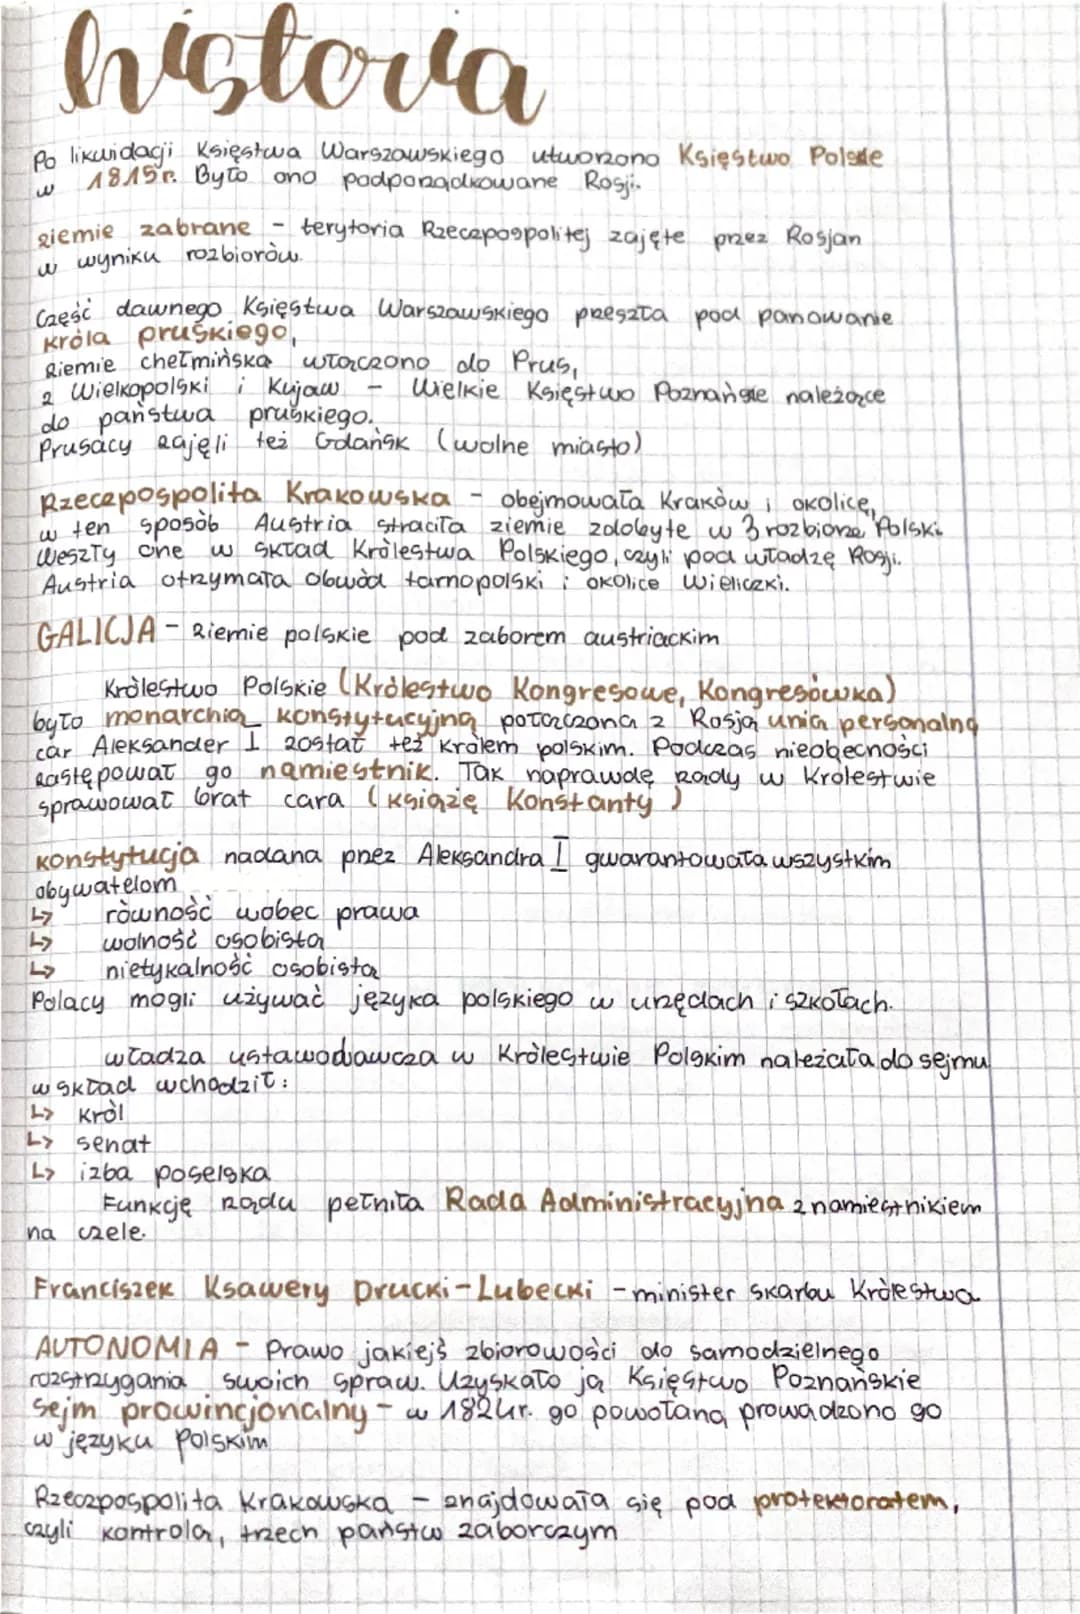 historia
Po likwidacji Księstwa Warszawskiego utworzono Księstwo Polskie
w 1815r. Było ono podporządkowane Rosji.
ziemie zabrane - terytoria Rzeczpospolitej zajęte przez Rosjan
w wyniku rozbiorów.
Część dawnego Księstwa Warszawskiego przeszła pod panowanie
króla pruskiego,
Ziemie chełmińska włączono do Prus,
z Wielkopolski i Kujaw - Wielkie Księstwo Poznańskie należące
do państwa pruskiego.
Prusacy zajęli też Gdańsk (wolne miasto)
Rzeczpospolita Krakowska - obejmowała Kraków i okolice,
w ten sposób Austria straciła ziemie zdobyte w 3 rozbiorze Polski.
Weszły one w skład Królestwa Polskiego, czyli pod władzę Rosji.
Austria otrzymała obwód tarnopolski i okolice Wieliczki.
GALICJA - ziemie polskie pod zaborem austriackim
Królestwo Polskie (Królestwo Kongresowe, Kongresówka)
było monarchią konstytucyjną połączoną z Rosją unią personalną
car Aleksander I został też królem polskim. Podczas nieobecności
zastępował go namiestnik. Tak naprawdę rządy w Królestwie
sprawował brat cara (książę Konstanty)
Konstytucja nadana przez Aleksandra I gwarantowała wszystkim
obywatelom
↳ równość wobec prawa
↳ wolność osobista
↳ nietykalność osobista
Polacy mogli używać języka polskiego w urzędach i szkołach.
władza ustawodawcza w Królestwie Polskim należała do sejmu
w skład wchodził:
↳ król
↳ senat
↳ izba poselska
Funkcję rządu pełniła Rada Administracyjna z namiestnikiem
na czele.
Franciszek Ksawery Drucki-Lubecki - minister skarbu Królestwa
AUTONOMIA - Prawo jakiejś zbiorowości do samodzielnego
rozstrzygania swoich spraw. Uzyskało ją Księstwo Poznańskie
Sejm prowincjonalny - w 1824r. go powołaną prowadzono go
w języku Polskim
Rzeczpospolita Krakowska - znajdowała się pod protektoratem,
czyli kontrolą, trzech państw zaborczym